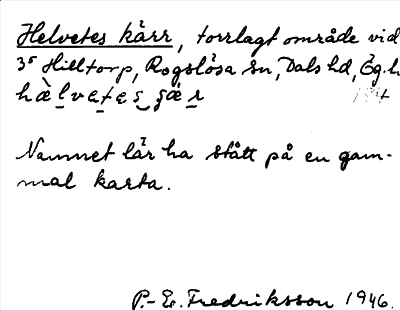 Helvetes kärr, torrlagt område vid
3⁵ Hilltorp, Rogslösa sn, Dals hd, Ög.l.
hæ̀lvetes çær
Namnet lär ha stått på en gam-
mal karta.
P.-E. Fredriksson 1946.